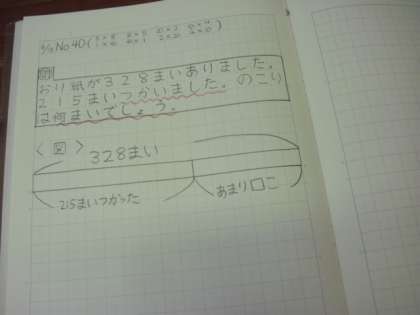 No.40
問
おり紙が328まいありました。
215まいつかいました。のこり
は何まいでしょう。
〈図〉
328まい
215まいつかった
あまり□こ